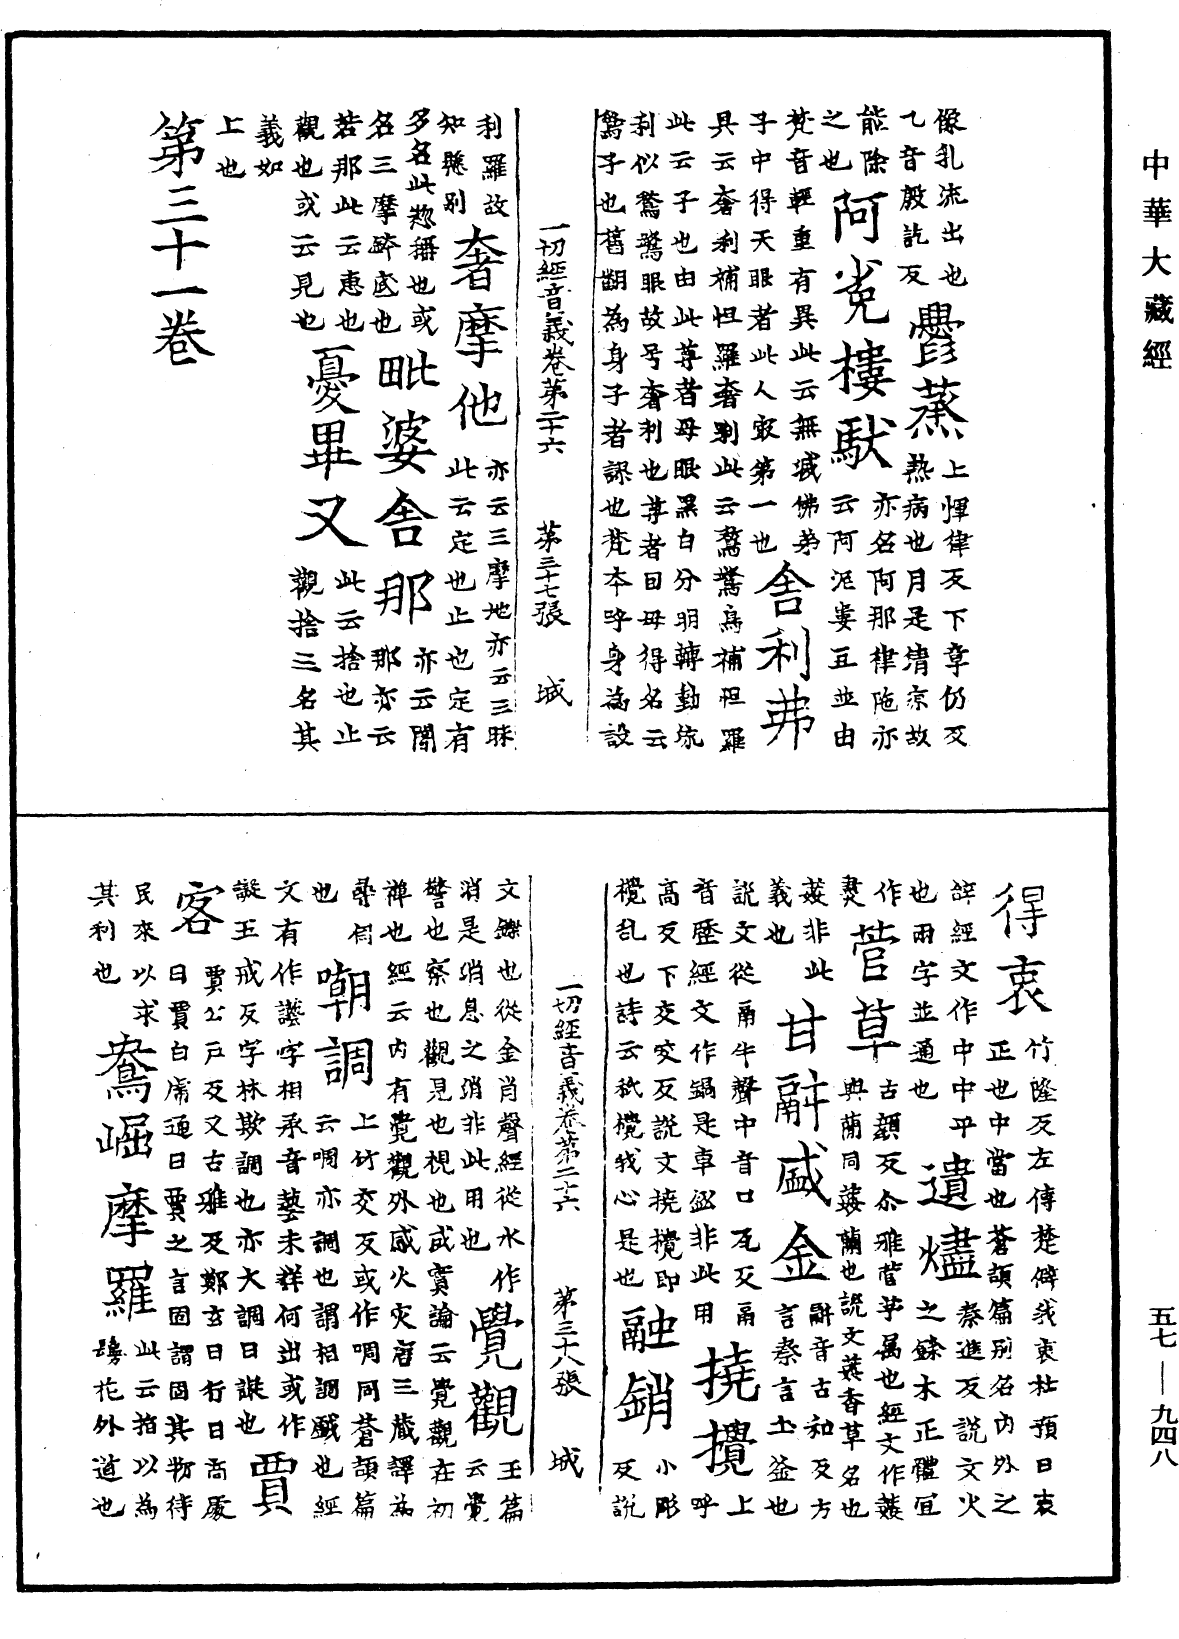 中華大藏經
像乳流出也
乙音殷訖反
鬱蒸
上惲律反下章仍反
熱病也月是清凉故
能除
之也
阿㝹樓馱
亦名阿那律陁亦
云阿泥婁豆並由
梵音輕重有異此云無滅佛弟
子中得天眼者此人㝡第一也
舍利弗
具云奢利補怛羅奢利此云鶖鷺鳥補怛羅
此云子也由此尊者母眼黑白分明轉動㳅
利似鶖鷺眼故号奢利也尊者因母得名云
鶖子也舊翻為身子者謬也梵本呼身為設
一切經音義卷第二十六 第三十七張 城
利羅故
知懸別
奢摩他
亦云三摩地亦云三昧
此云定也止也定有
多名此惣稱也或
名三摩鉢底也
毗婆舍那
亦云闍
那亦云
若那此云惠也
觀也或云見也
憂畢叉
此云捨也止
觀捨三名其
義如
上也
第三十一卷
得衷
竹隆反左傳楚僻我衷杜預曰衷
正也中當也蒼頡篇別名內外之
辝經文作中中平
也兩字並通也
遺燼
秦進反說文火
之餘木正體冝
作
㶳
菅草
古顏反尒雅菅茅属也經文作葌
與蕑同葌蘭也說文葌香草名也
葌非此
義也
甘鬴盛金
鬴音古和反方
言秦言土釜也
說文從鬲牛聲中音口瓦反鬲
音歷經文作鍋是車釭非此用
撓攪
上
呼
高反下交咬反說文撓攪即
攪乱也詩云祇攪我心是也
融銷
小彫
反說
一切經音義卷第二十六 第三十八張 城
文鑠也從金肖聲經從水作
消是消息之消非此用也
覺觀
玉篇
云覺
警也察也觀見也視也成實論云覺觀在初
禪也經云內有覺觀外感火灾舊三藏譯為
尋伺
也
嘲調
上竹交反或作啁同蒼頡篇
云啁亦調也謂相調戲也經
文有作讛字相承音藝未詳何出或作
𧩦五戒反字林欺調也亦大調曰𧩦也
賈
客
賈公戶反又古雅反鄭玄曰行曰商處
曰賈白虎通曰賈之言固謂固其物待
民來以求
其利也
鴦崛摩羅
此云指以為
鬘花外道也
五七—九四八